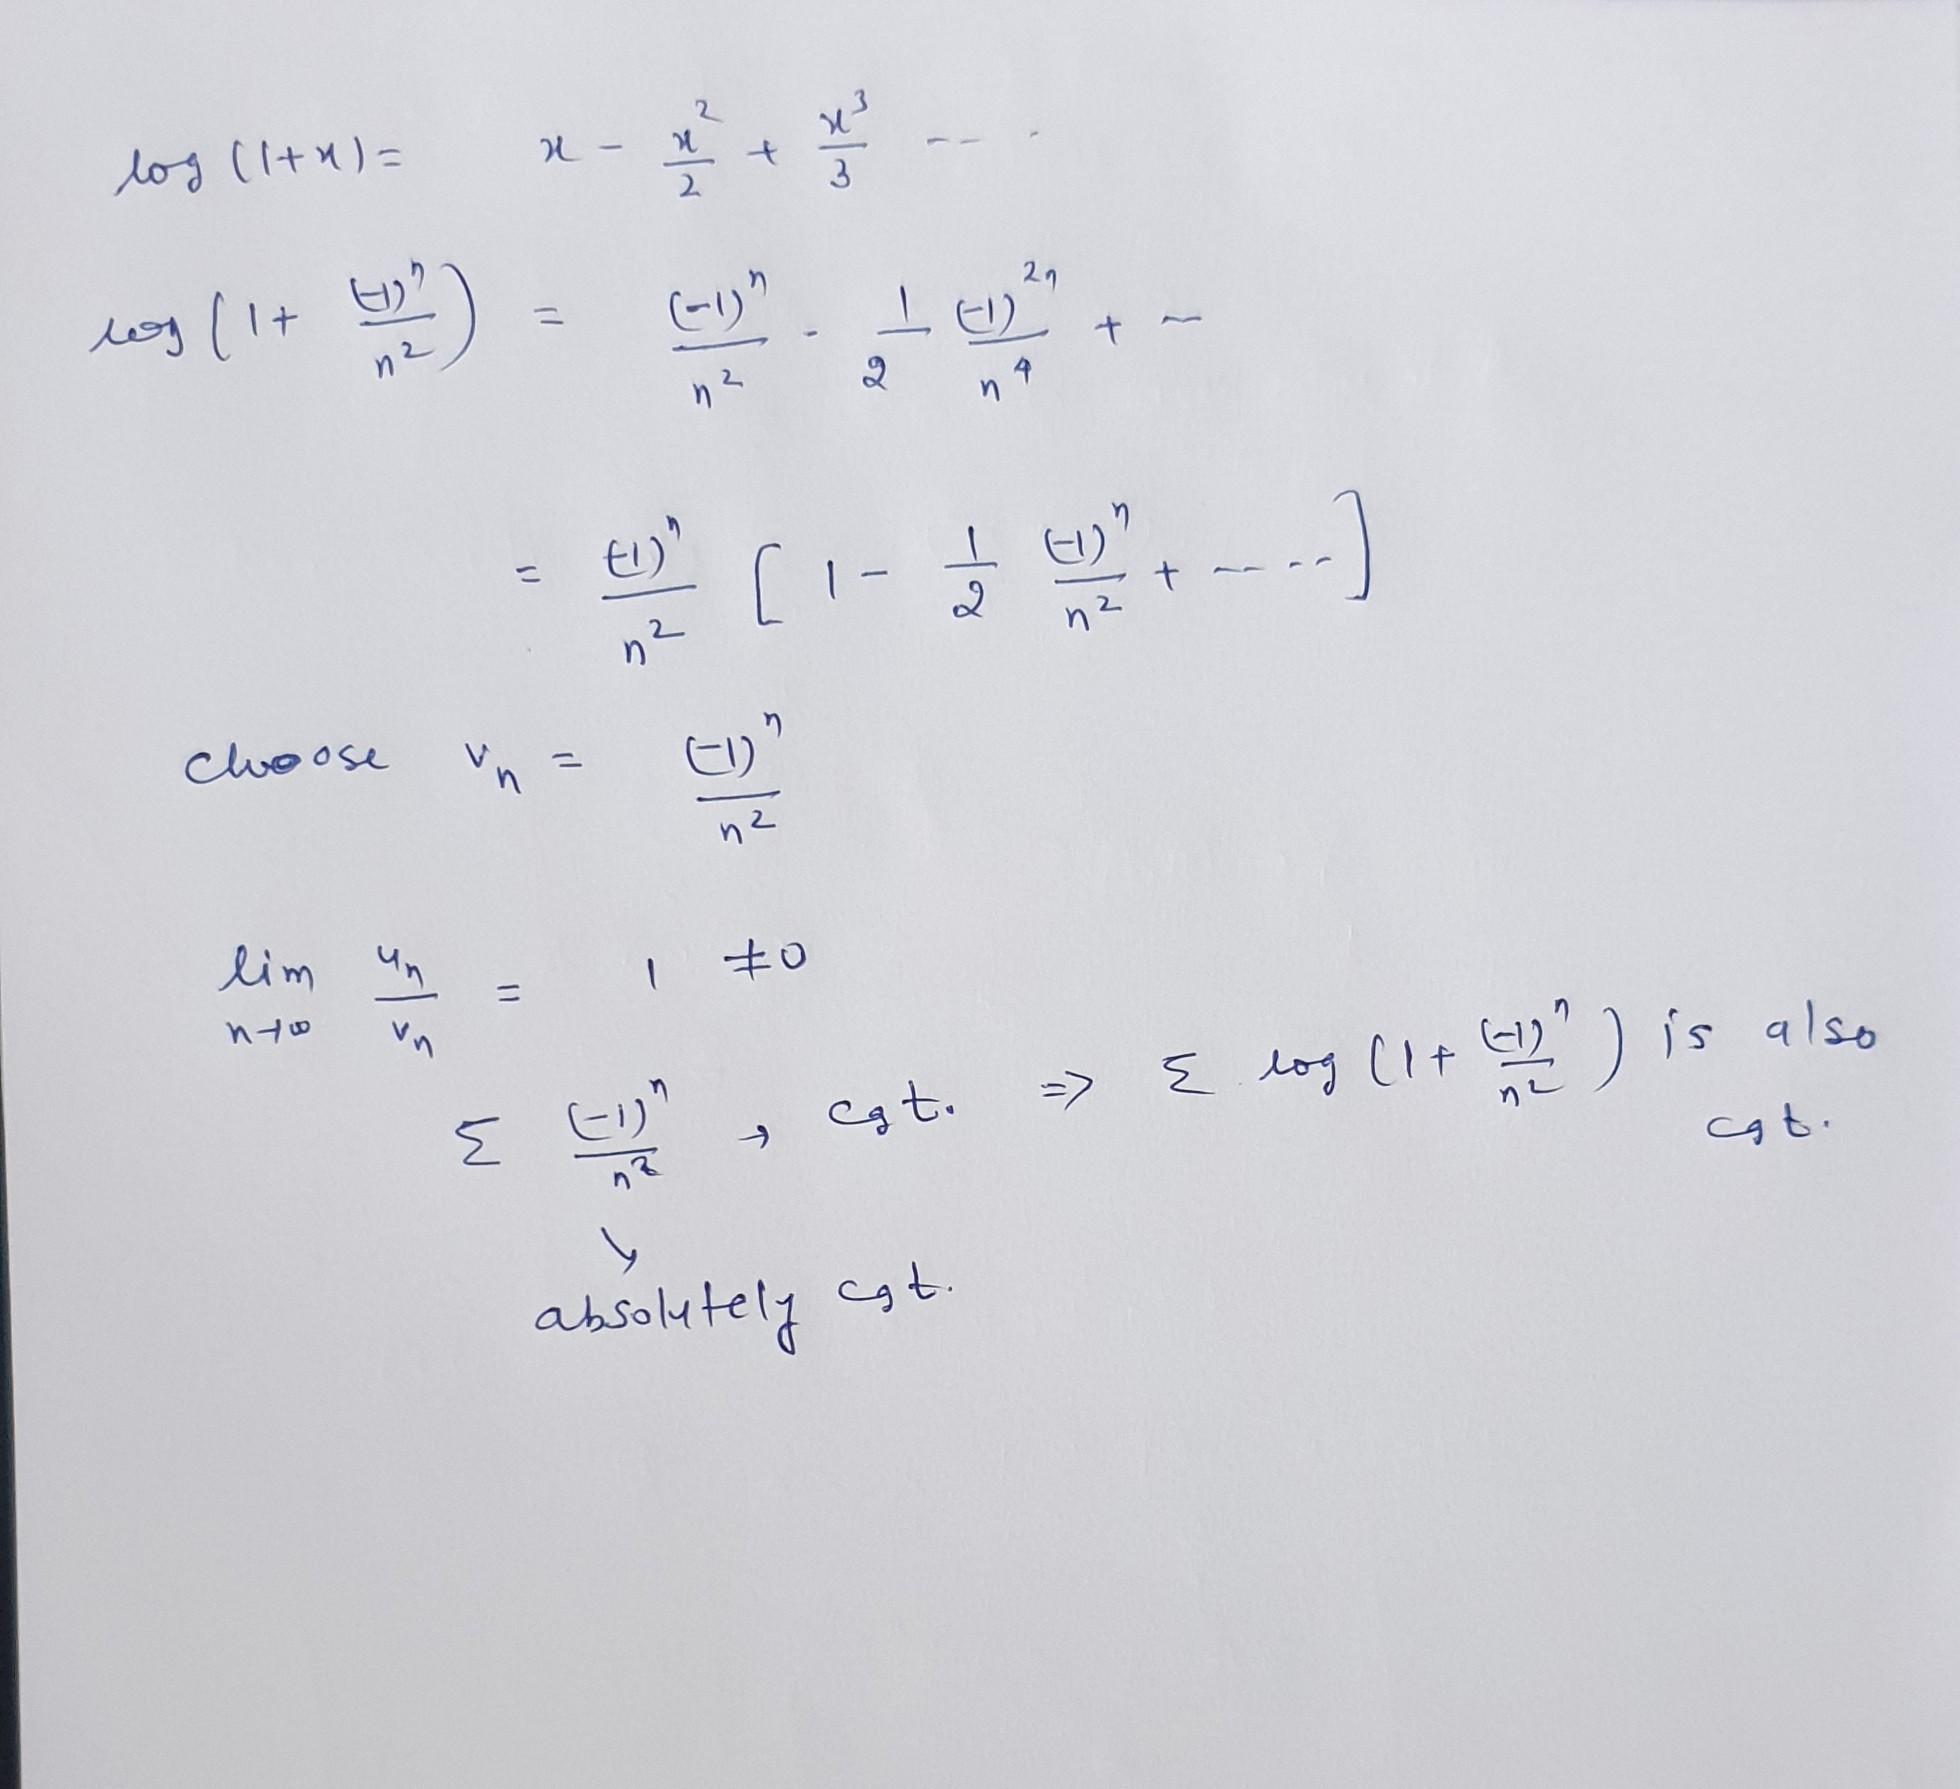 log (1+x) = x - x²/2 + x³/3 -- -
log (1 + (-1)ⁿ/n²) = (-1)ⁿ/n² - 1/2 (-1)²ⁿ/n⁴ + --
= (-1)ⁿ/n² [1 - 1/2 (-1)ⁿ/n² + -----]
choose vₙ = (-1)ⁿ/n²
lim n→∞ uₙ/vₙ = 1 ≠0
Σ (-1)ⁿ/n² → cgt. => Σ log (1 + (-1)ⁿ/n²) is also
cgt.
↘
absolutely cgt.